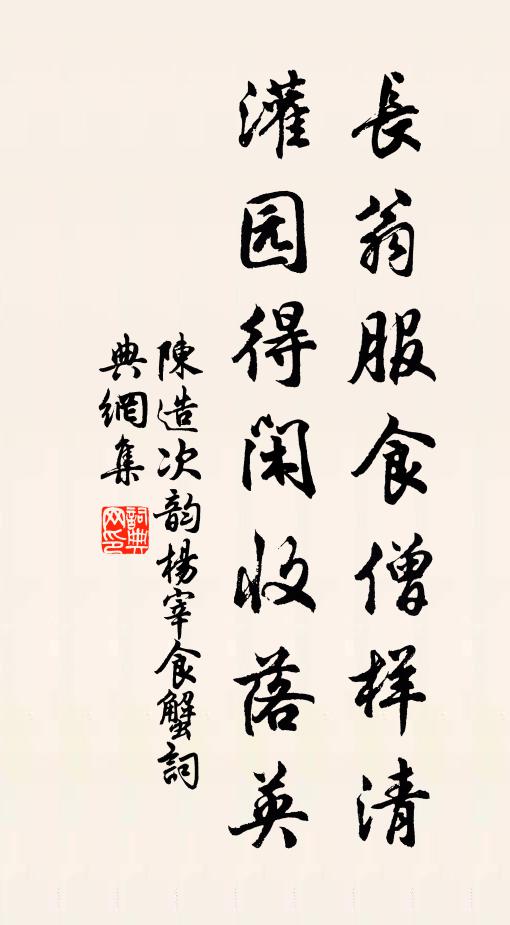 長翁服食僧样清
灌园得闲收落英
陳造次韵楊宰食蟹詞
典網集
詞典
网印